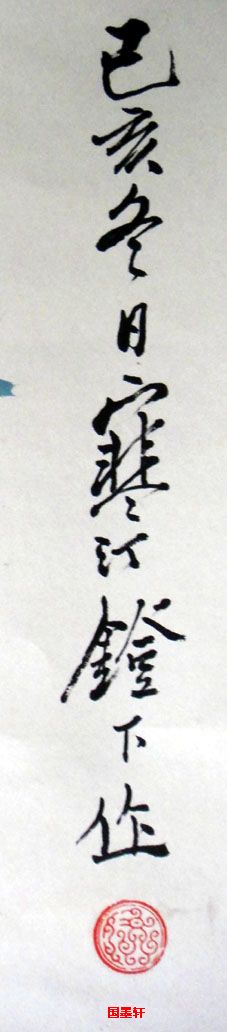 己亥冬日寒汀鐙下作
国墨轩